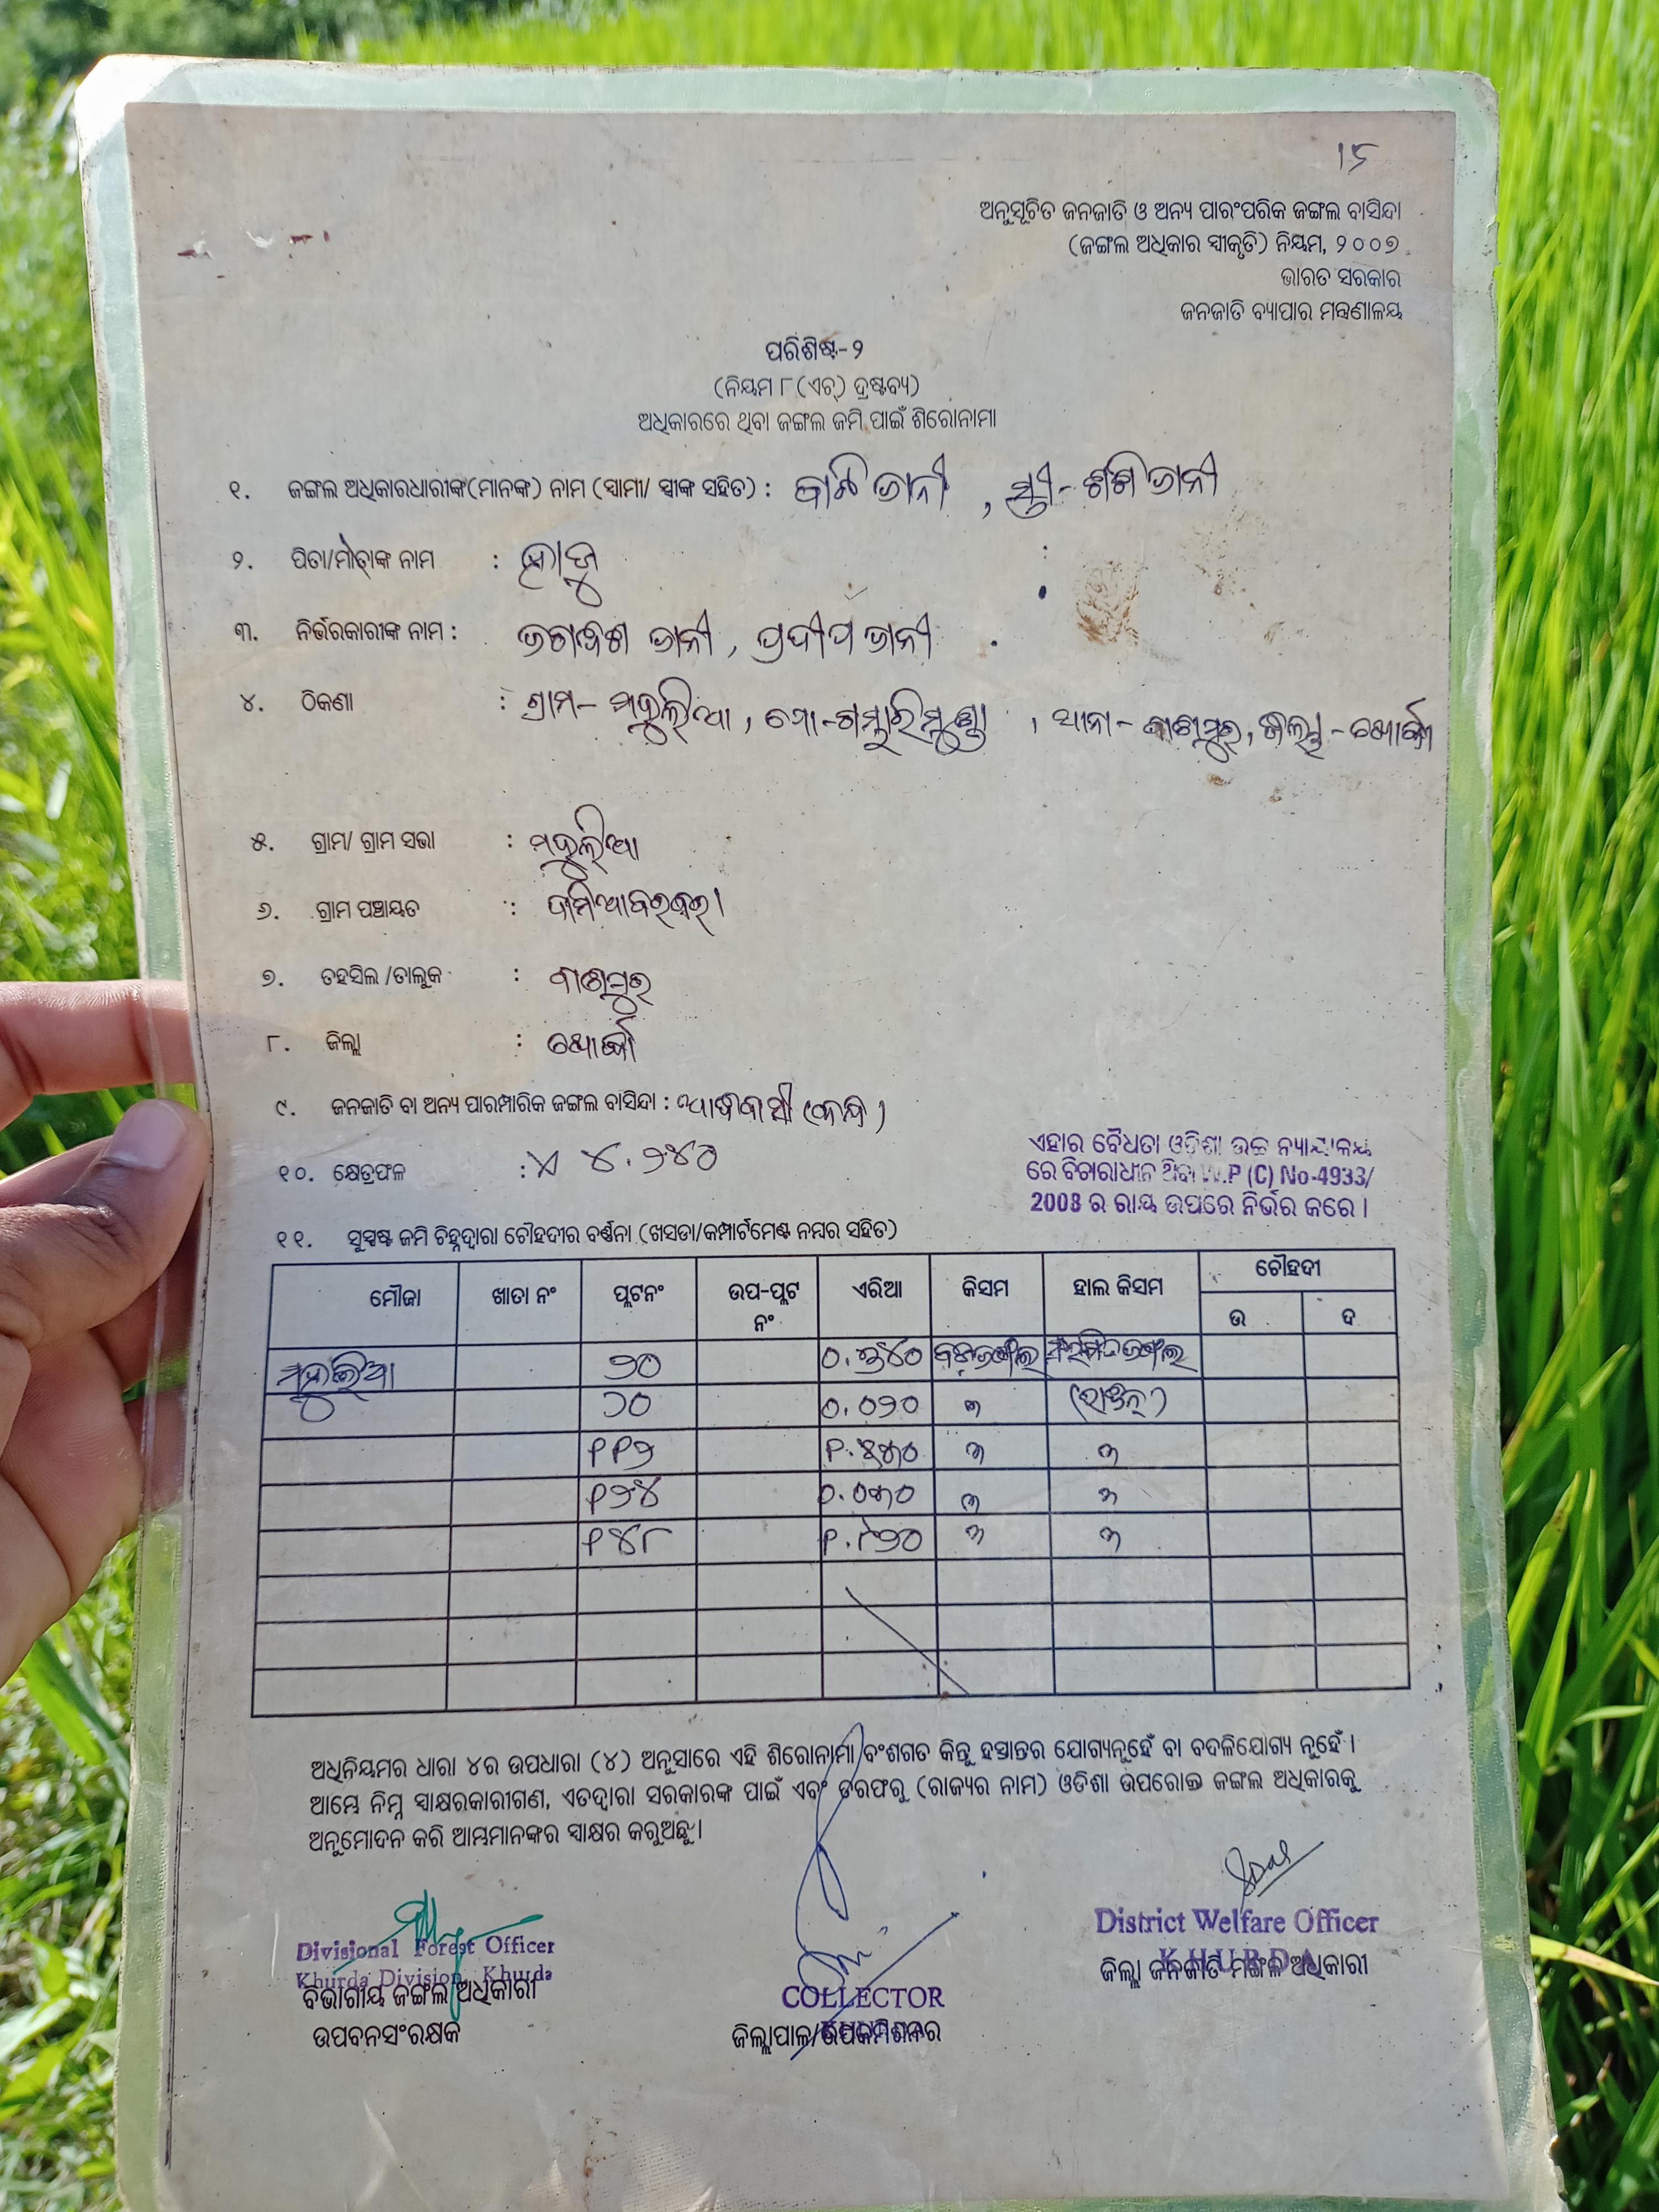 ୧୮
ଅନୁସୂଚିତ ଜନଜାତି ଓ ଅନ୍ୟ ପାରଂପରିକ ଜଙ୍ଗଲ ବାସିନ୍ଦା
(ଜଙ୍ଗଲ ଅଧିକାର ସ୍ୱୀକୃତି) ନିୟମ, ୨୦୦୭
ଭାରତ ସରକାର
ଜନଜାତି ବ୍ୟାପାର ମନ୍ତ୍ରଣାଳୟ
ପରିଶିଷ୍ଟ-୨
(ନିୟମ ୮ (ଏଚ୍) ଦ୍ରଷ୍ଟବ୍ୟ)
ଅଧିକାରରେ ଥିବା ଜଙ୍ଗଲ ଜମି ପାଇଁ ଶିରୋନାମା
୧. ଜଙ୍ଗଲ ଅଧିକାରଧାରୀଙ୍କ(ମାନଙ୍କ) ନାମ (ସ୍ୱାମୀ/ ସ୍ତ୍ରୀଙ୍କ ସହିତ) : ଜାନୀ , ସ୍ତ୍ରୀ- ଜାନୀ
୨. ପିତା/ମାତାଙ୍କ ନାମ :
୩. ନିର୍ଭରକାରୀଙ୍କ ନାମ : ଜାନୀ , ପ୍ରଦୀପ ଜାନୀ
୪. ଠିକଣା : ଗ୍ରାମ- ମହୁଲିଆ , ପୋ-ଗମ୍ଭାରିମୁଣ୍ଡା , ଥାନା- ବାଣପୁର, ଜିଲ୍ଲା -ଖୋର୍ଦ୍ଧା
୫. ଗ୍ରାମ/ ଗ୍ରାମ ସଭା : ମହୁଲିଆ
୬. ଗ୍ରାମ ପଞ୍ଚାୟତ :
୭. ତହସିଲ /ତାଲୁକ : ବାଣପୁର
୮. ଜିଲ୍ଲା : ଖୋର୍ଦ୍ଧା
୯. ଜନଜାତି ବା ଅନ୍ୟ ପାରମ୍ପାରିକ ଜଙ୍ଗଲ ବାସିନ୍ଦା : ଆଦିବାସୀ (କନ୍ଧ)
୧୦. କ୍ଷେତ୍ରଫଳ : ୪.୨୪୦
ଏହାର ବୈଧତା ଓଡ଼ିଶା ଉଚ୍ଚ ନ୍ୟାୟାଳୟ
ରେ ବିଚାରାଧୀନ ଥିବା W.P (C) No-4933/
2008 ର ରାୟ ଉପରେ ନିର୍ଭର କରେ ।
୧୧. ସୁସ୍ପଷ୍ଟ ଜମି ଚିହ୍ନଦ୍ୱାରା ଚୌହଦୀର ବର୍ଣ୍ଣନା (ଖସଡା/କମ୍ପାର୍ଟମେଣ୍ଟ ନମ୍ବର ସହିତ)
ମୌଜା ଖାତା ନଂ ପ୍ଲଟନଂ ଉପ-ପ୍ଲଟ ନଂ ଏରିଆ କିସମ ହାଲ କିସମ ଚୌହଦୀ
ଉ ଦ
ମହୁଲିଆ ୨୦
୨୦ ୦.୦୨୦ ୩
୧୧୨ ୩ ୩
୧୨୪ ୦.୦୩୦ ୩ ୩
୧୪୮ ୩ ୩
ଅଧିନିୟମର ଧାରା ୪ର ଉପଧାରା (୪) ଅନୁସାରେ ଏହି ଶିରୋନାମା ବଂଶଗତ କିନ୍ତୁ ହସ୍ତାନ୍ତର ଯୋଗ୍ୟନୁହେଁ ବା ବଦଳିଯୋଗ୍ୟ ନୁହେଁ ।
ଆମ୍ଭେ ନିମ୍ନ ସ୍ୱାକ୍ଷରକାରୀଗଣ, ଏତଦ୍ୱାରା ସରକାରଙ୍କ ପାଇଁ ଏବଂ ତରଫରୁ (ରାଜ୍ୟର ନାମ) ଓଡିଶା ଉପରୋକ୍ତ ଜଙ୍ଗଲ ଅଧିକାରକୁ
ଅନୁମୋଦନ କରି ଆମ୍ଭମାନଙ୍କର ସ୍ୱାକ୍ଷର କରୁଅଛୁ ।
Divisional Forest Officer
Khurda Division, Khurda
ବିଭାଗୀୟ ଜଙ୍ଗଲ ଅଧିକାରୀ
ଉପବନସଂରକ୍ଷକ
COLLECTOR
ଜିଲ୍ଲାପାଳ/ଉପକମିଶନର
District Welfare Officer
KHURDA
ଜିଲ୍ଲା ଜନଜାତି ମଙ୍ଗଳ ଅଧିକାରୀ